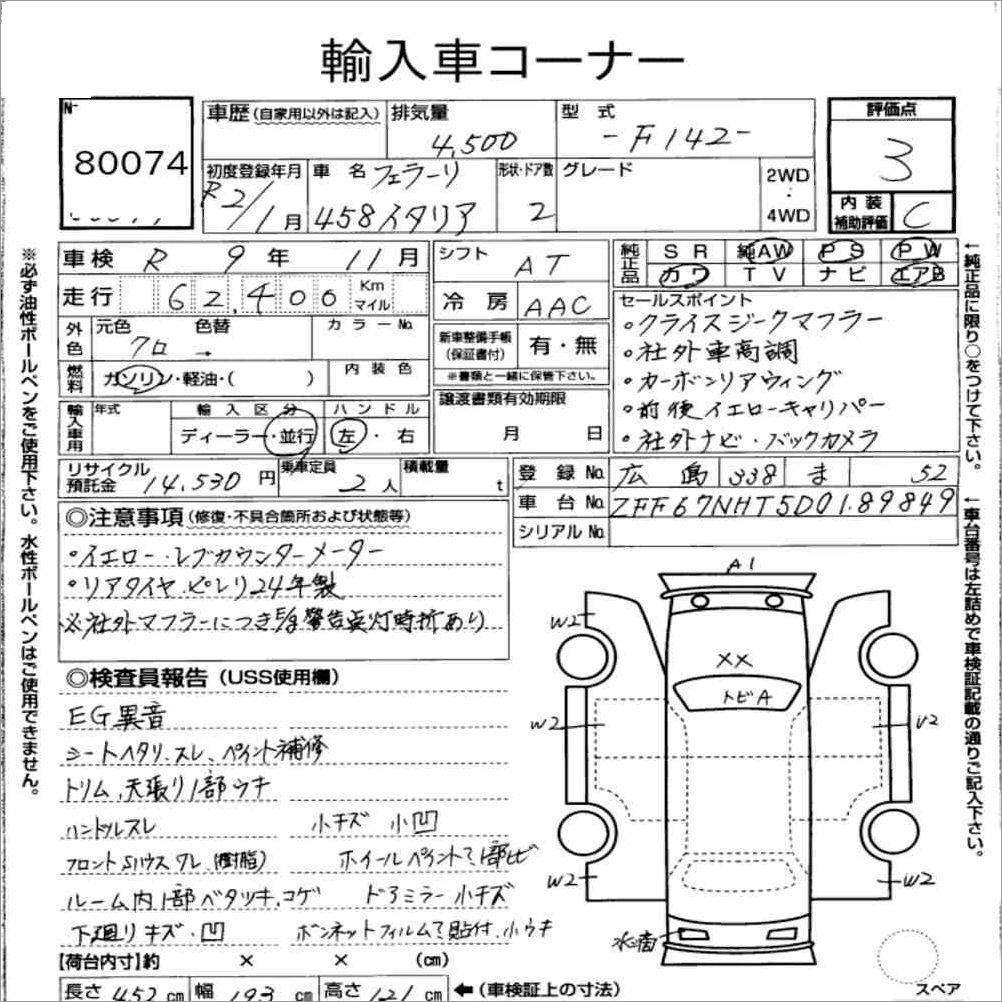 輸入車コーナー
No.
80074
車歴 (自家用以外は記入)
排気量
4,500
型式
-F142-
評価点
3
初度登録年月
R2/1月
車名 フェラーリ
458イタリア
形状・ドア数
2
グレード
2WD
:
4WD
内装
補助評価
C
車検 R 9年 11月
シフト
AT
純正品
SR 純AW PS PW
カワ TV ナビ エアB
走行 62,400 Km
マイル
冷房 AAC
セールスポイント
・クライスジークマフラー
・社外車高調
・カーボンリアウィング
・前後イエローキャリパー
・社外ナビ・バックカメラ
外色
元色 色替
クロ →
カラーNo.
新車整備手帳
(保証書付)
有・無
※書類と一緒に保管下さい。
燃料
ガソリン・軽油・( )
内装色
譲渡書類有効期限
月 日
輸入車用
年式
輸入区分
ディーラー・並行
ハンドル
左・右
リサイクル
預託金
14,530円
乗車定員
2人
積載量
t
登録No. 広島 338 ま 52
車台No. ZFF67NHT5D0189849
シリアルNo.
◎注意事項 (修復・不具合箇所および状態等)
・イエロー・レブカウンターメーター
・リアタイヤ・ピレリ24年製
※社外マフラーにつきE/g警告点灯時折あり
◎検査員報告 (USS使用欄)
EG異音
シートヘタリ、スレ、ペイント補修
トリム、天張り1部ウキ
ハンドルスレ 小キズ 小凹
フロントSハウスワレ(樹脂) ホイールペイント?1部ヒビ
ルーム内1部ベタツキ、コゲ ドアミラー小キズ
下廻りキズ・凹 ボンネットフィルム?貼付、小ウキ
【荷台内寸】約 × × (cm)
長さ 452 cm 幅 193 cm 高さ 121 cm
←(車検証上の寸法)
A1
W2
XX
トビA
W2
U2
W2
W2
スペア
※必ず油性ボールペンをご使用下さい。水性ボールペンはご使用できません。
←純正品に限り○をつけて下さい。
←車台番号は左詰めで車検証記載の通りご記入下さい。